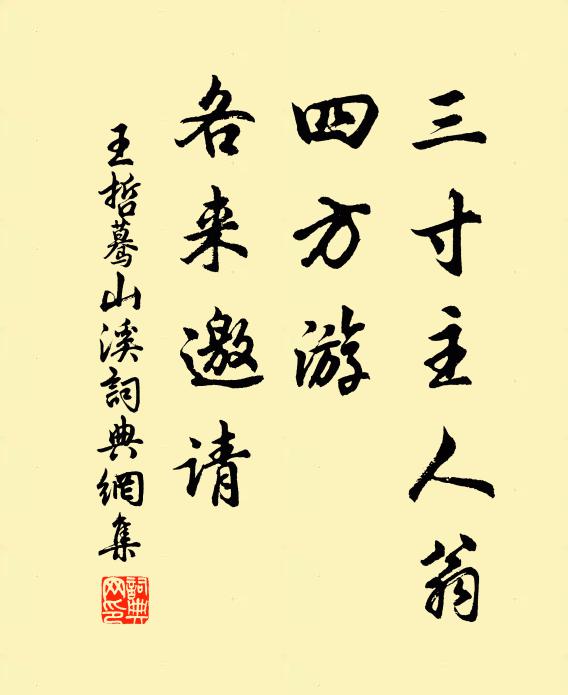 三寸主人翁
四方游
各来邀请
王哲蓦山溪詞典網集
詞典网印